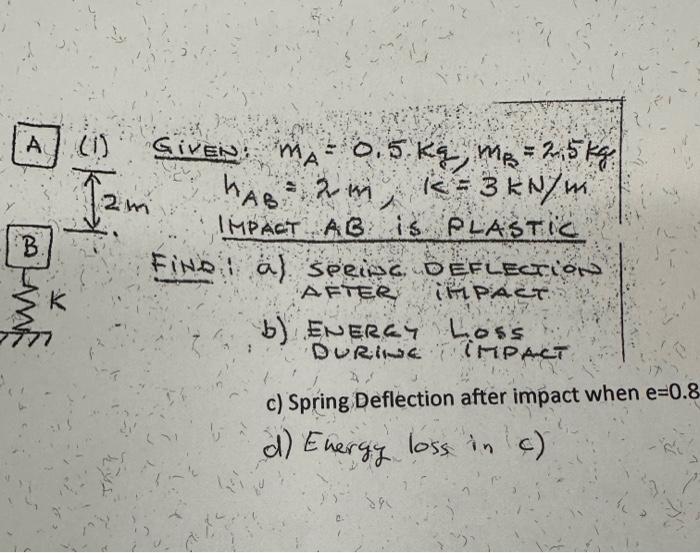 A (1) GIVEN: mA = 0.5 Kg, mB = 2.5 kg
2m hAB = 2 m, K = 3 KN/m
IMPACT AB is PLASTIC
B
K FIND: a) SPRING DEFLECTION
AFTER IMPACT
b) ENERGY LOSS
DURING IMPACT
c) Spring Deflection after impact when e=0.8
d) Energy loss in c)